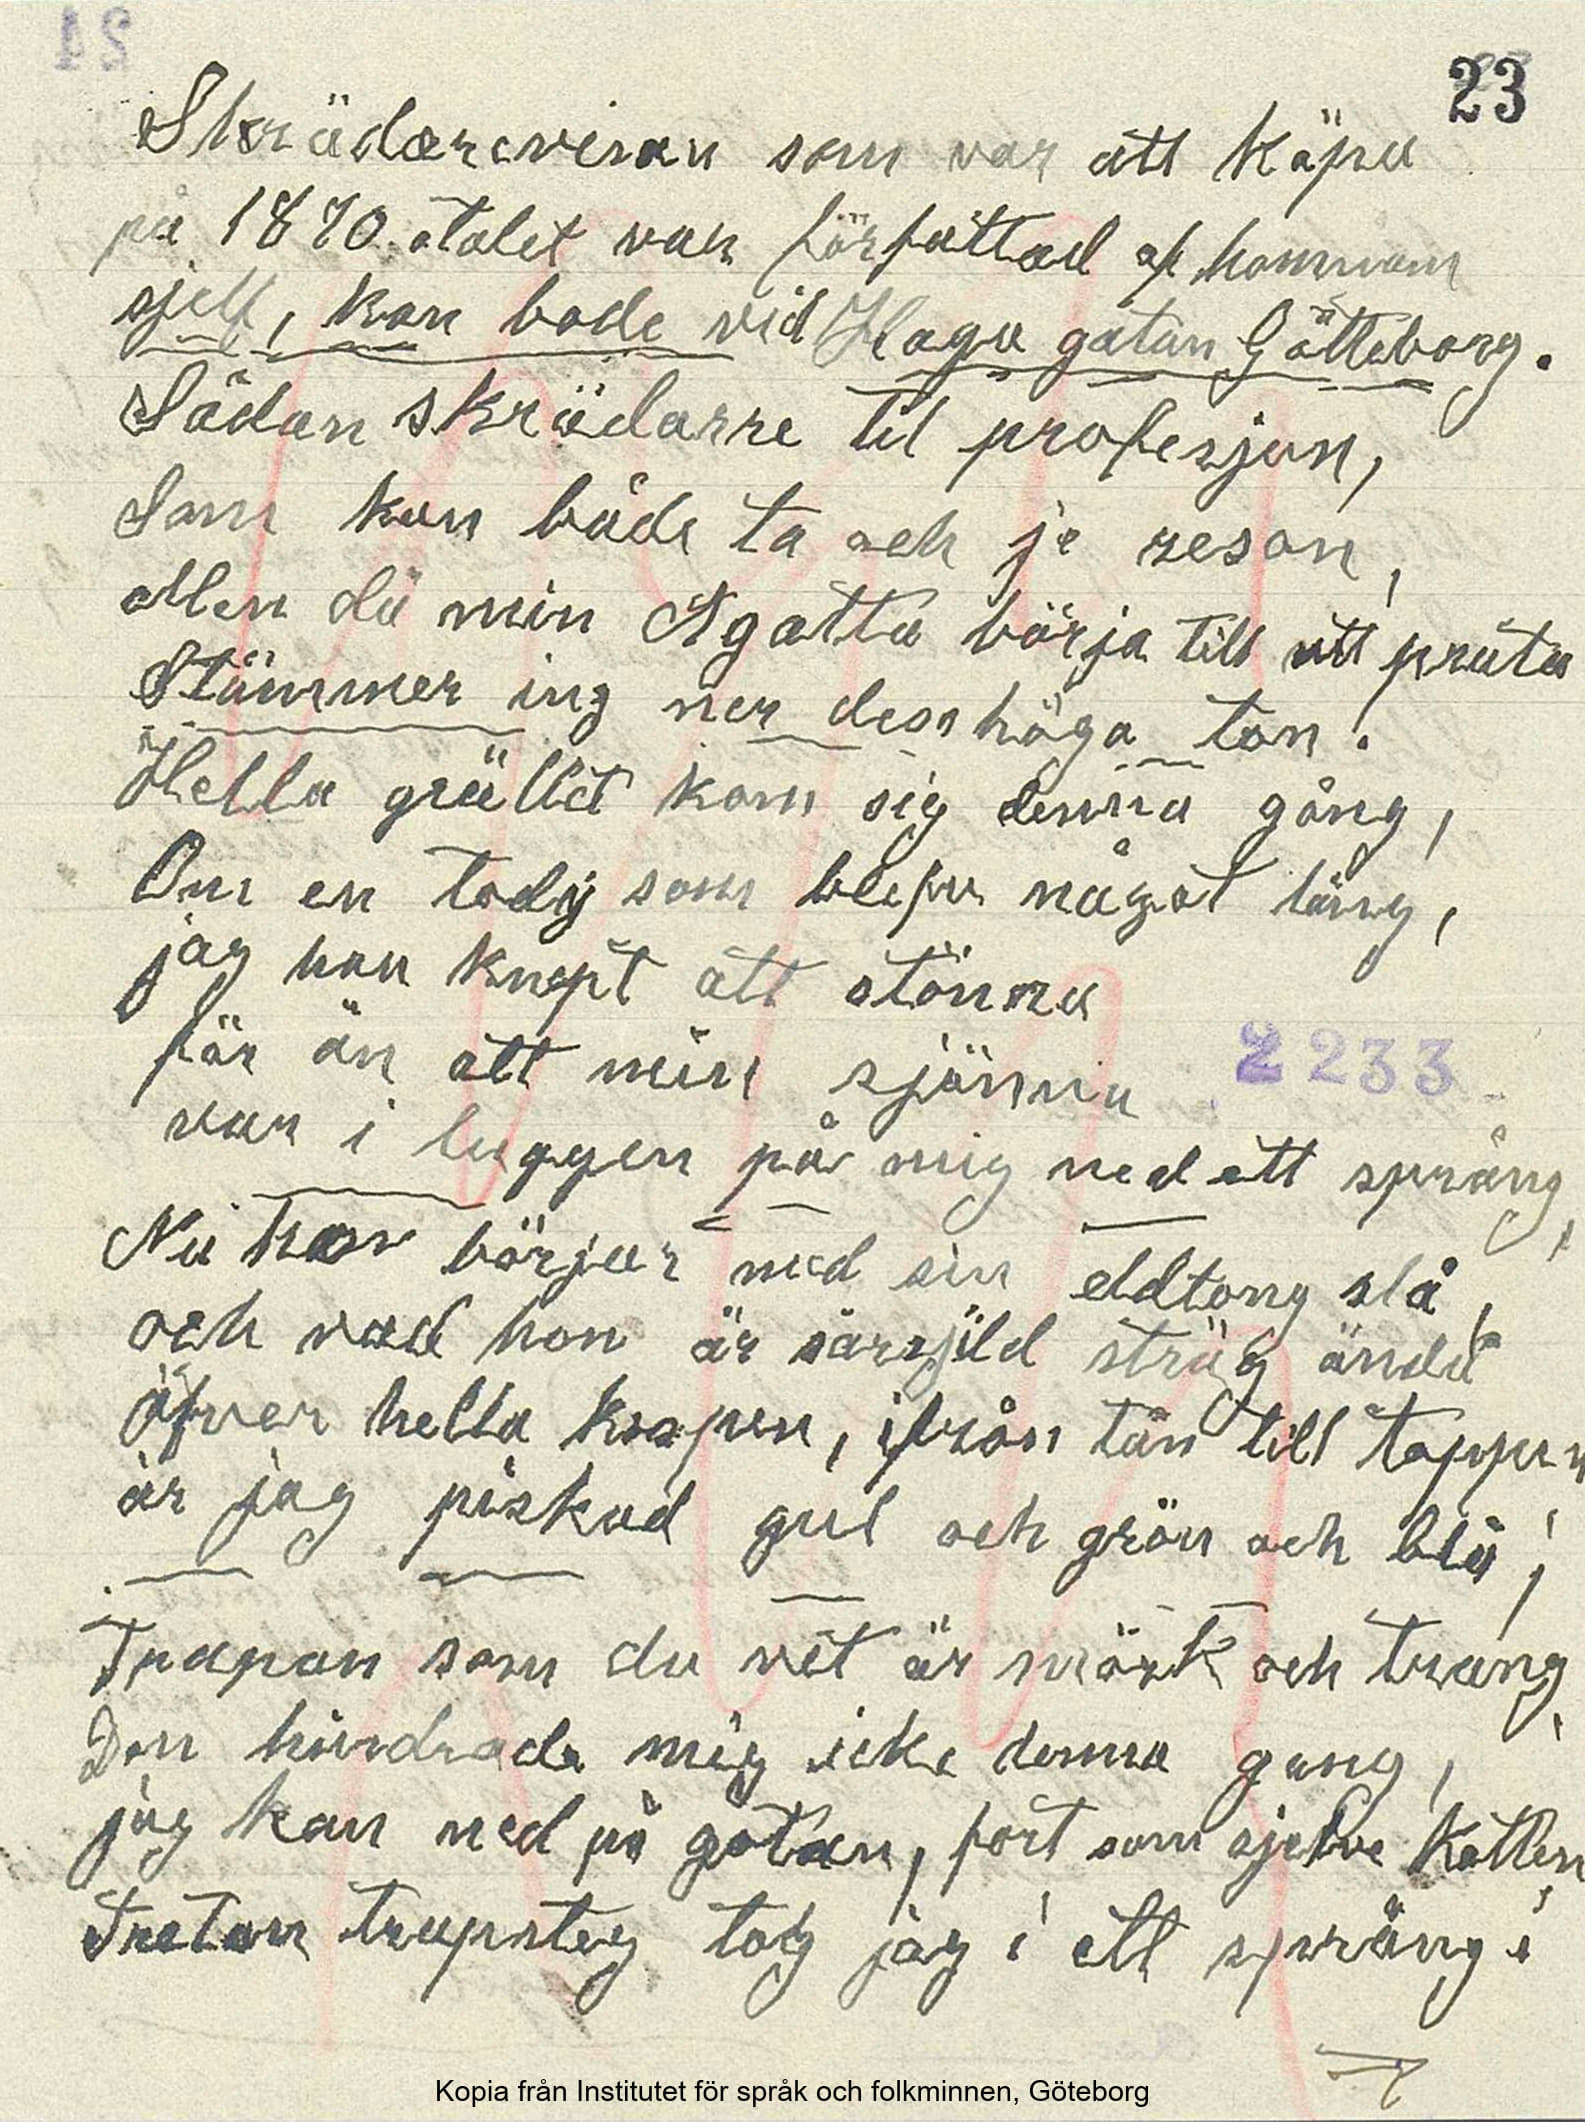 23
Skrädarevisan som var att köpa
på 1870 talet var författad af honnom
sjelf, kan bode vid Haga gatan Götteborg.
Sådan skrädarre til profesjon,
Som kan både ta och je reson,
Men då min Agatta börja till att pruta
Stämmer ing ner dess höga ton.
Hella grället kom sig denna gång,
Om en tody som blefve något lång,
jag han knept att stönna
för än att min sjönna
var i luggen på mig med ett språng,
Nu hon börjar med sin eldtong slå,
och vad hon är särsjild sträg ändå
Öfver hella kropen, ifrån tån till toppen
är jag piskad gul och grön och blå,
Trapan som du vet är mörk och trang,
Den hindrade mig icke denna gang,
jag kan ned på gatan, fort som sjelve Katten
Tretan trapsteg tog jag i ett språng
2233
Kopia från Institutet för språk och folkminnen, Göteborg